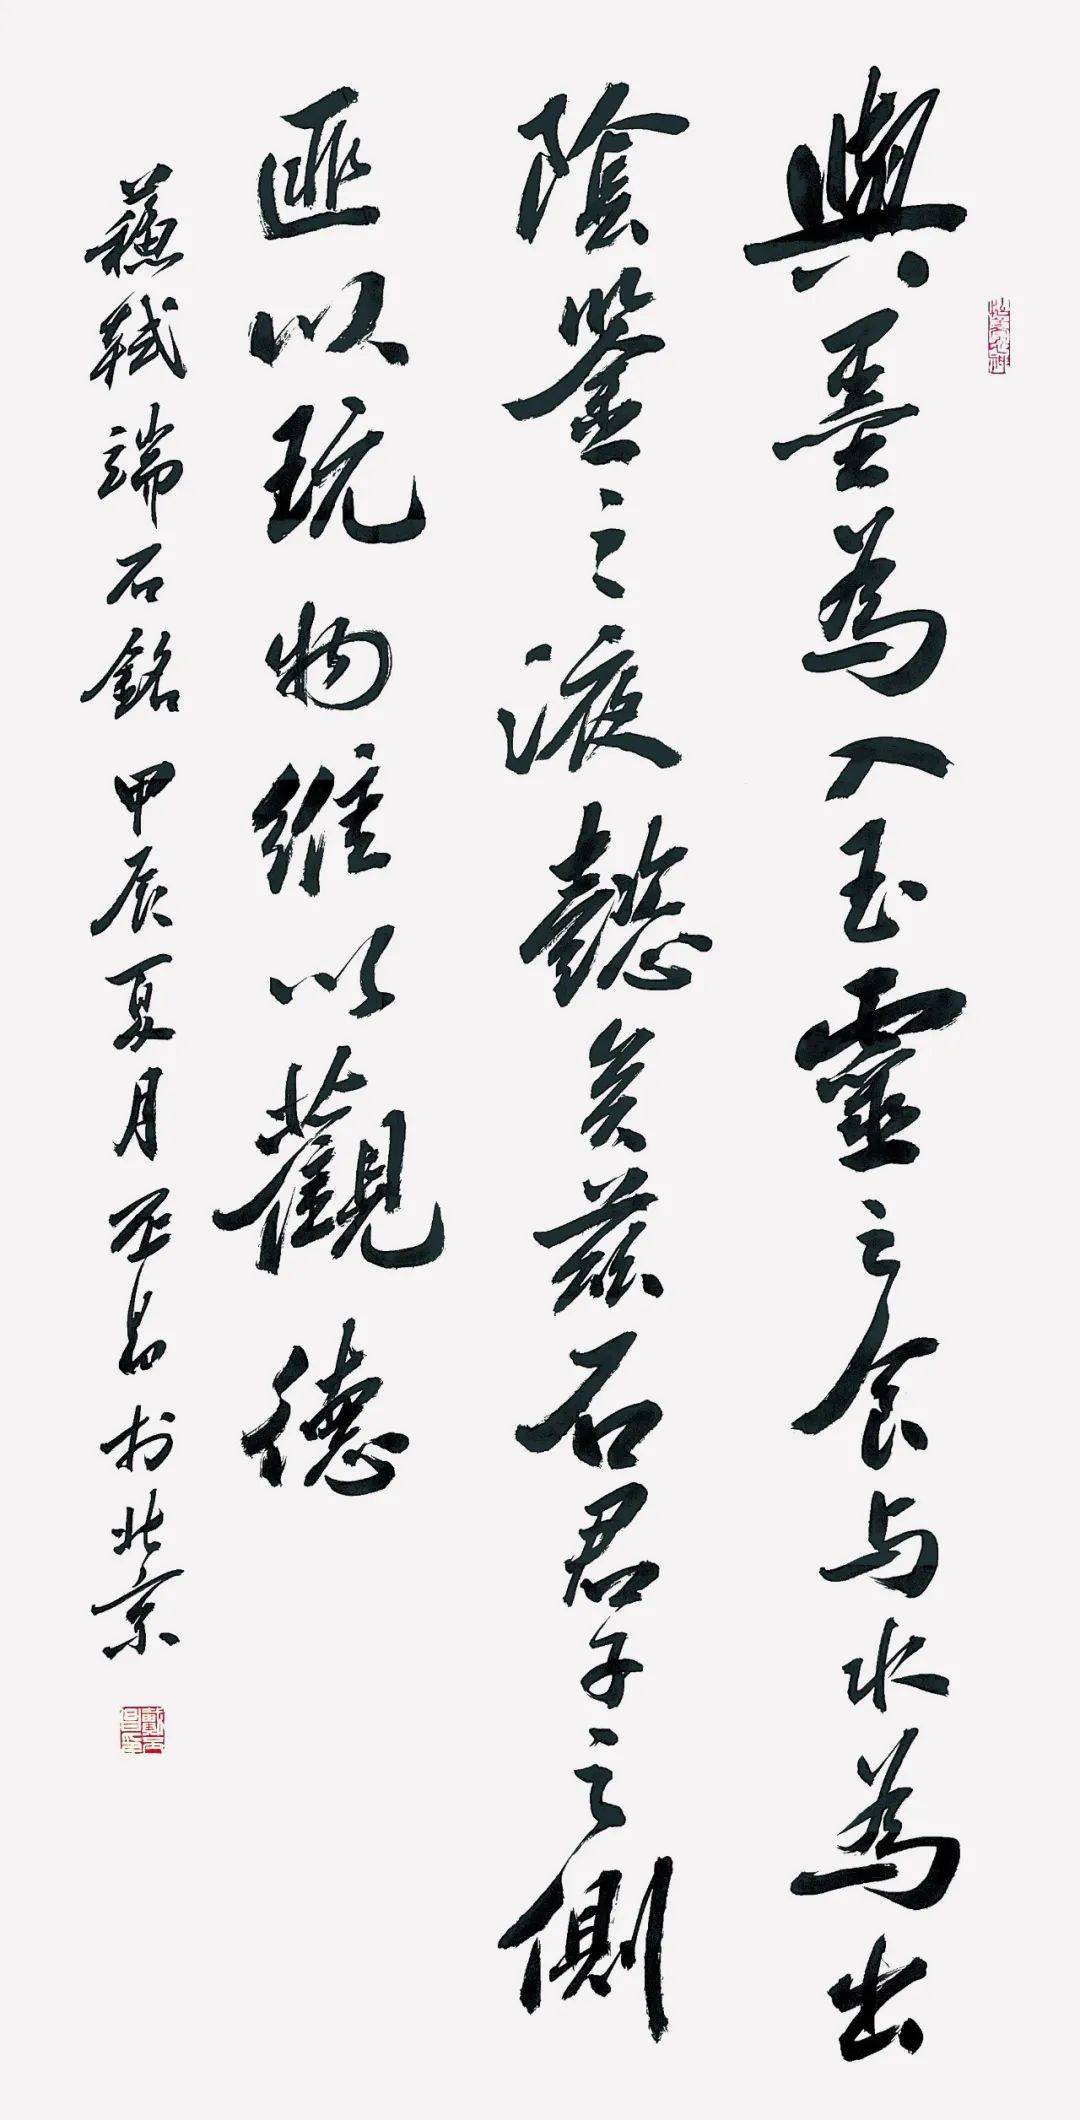 與墨為入玉靈之食与水為出
陰鑒之液懿矣茲石君子之側
匪以玩物維以觀德
蘇軾端石銘 甲辰夏月 丕昌扵北京
戴丕昌印